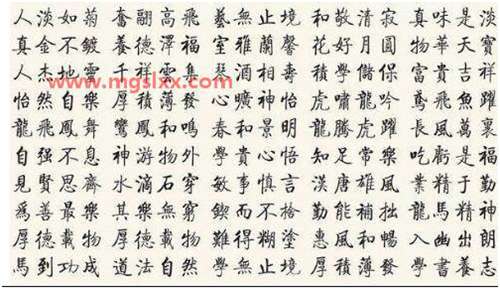 人淡如菊 奮翮高飛 藝無止境 和敬清寂 真味是淡
真金不鍍 養德澤福 室雅蘭馨 花好月圓 物華天寶
www.mgslxx.com
人杰地靈 千祥雲集 酒相壽 積學儲保 富貴吉祥
怡然自樂 厚積薄發 心曠神怡 虎嘯龍吟 鳶飛魚躍
龍飛鳳舞 鸞鳳和鳴 春和景明 龍騰虎躍 長風萬裏
自强不息 神游物外 學貴心悟 知足常樂 吃虧是福
見賢思齊 水滴石穿 敏事慎言 漢唐雄風 業精于勤
爲善最樂 其樂無窮 鍥而不捨 勤能補拙 龍馬精神
厚德載物 厚德載物 難得糊塗 惠風和暢 入幽出朗
馬到功成 道法自然 學無止境 厚積薄發 學書養志